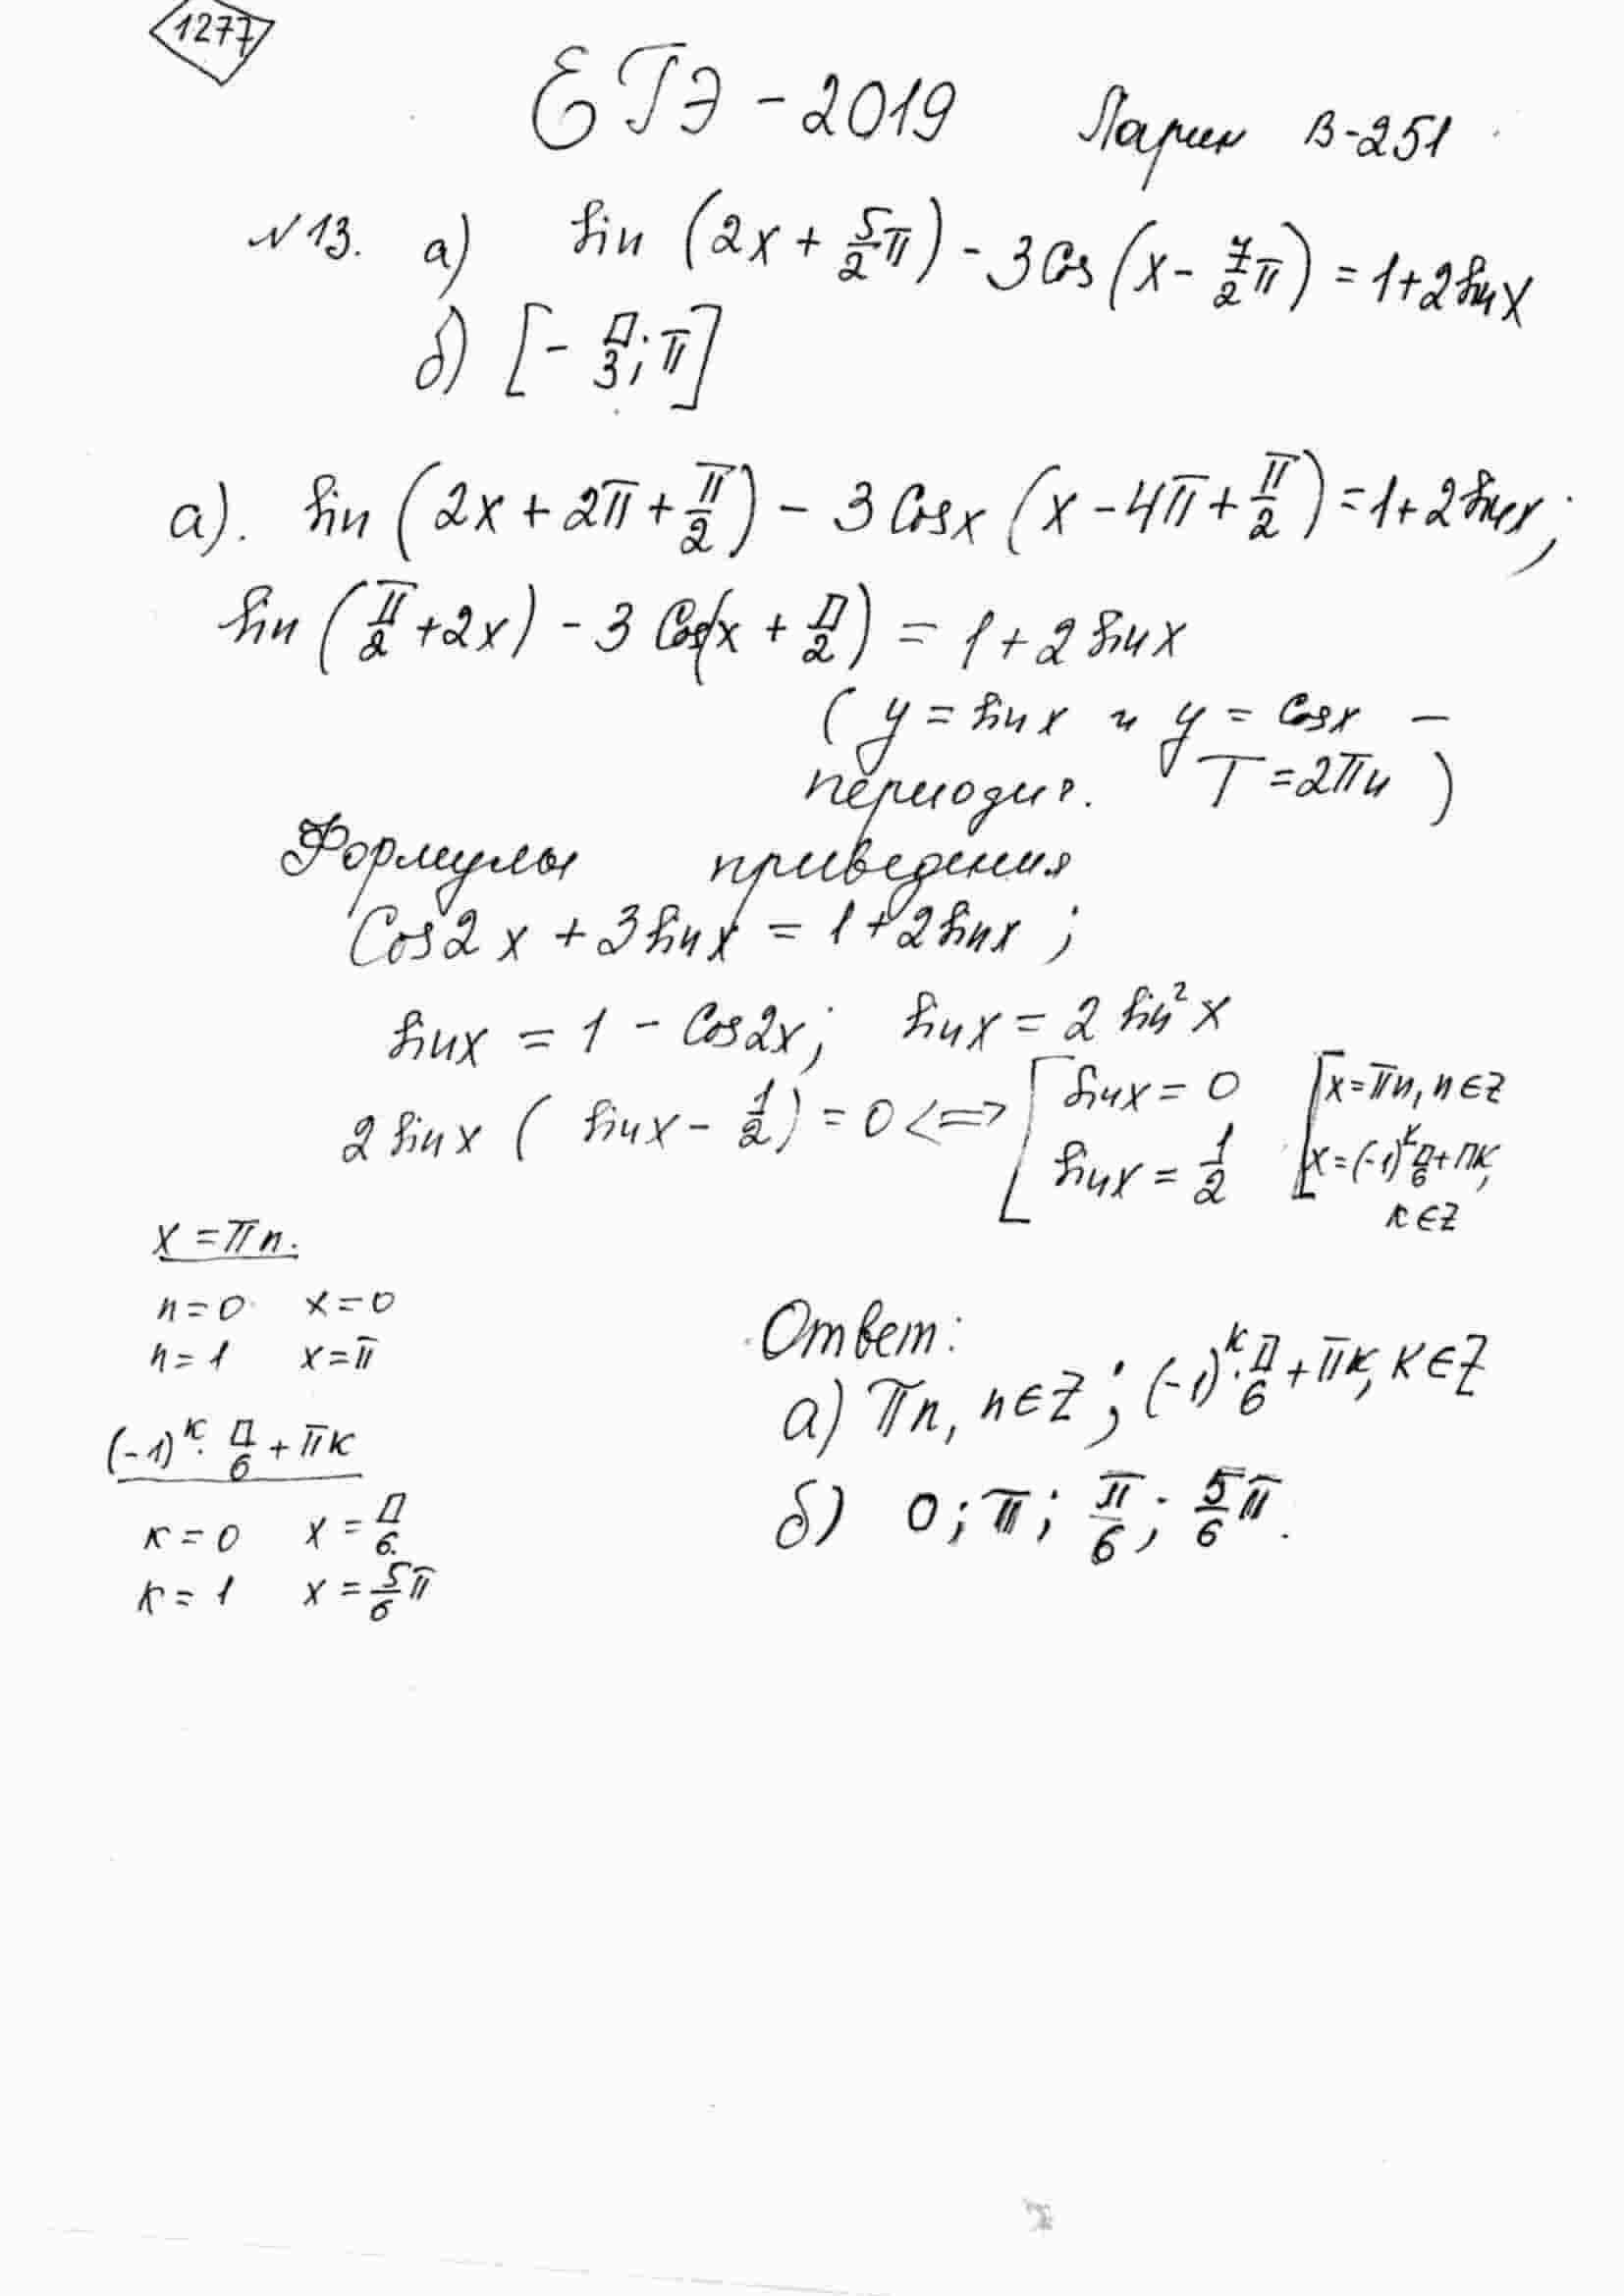 1277
ЕГЭ - 2019 Ларин В-251
№13. а) sin (2x + 5/2 π) - 3 Cos (x - 7/2 π) = 1+2 sin x
б) [- π/3; π]
а). sin (2x + 2π + π/2) - 3 Cosx (x - 4π + π/2) = 1+2 sin x;
sin (π/2 + 2x) - 3 Cos(x + π/2) = 1 + 2 sin x
(y = sin x и y = Cosx —
периодич. T = 2πn)
Формулы приведения
Cos2x + 3 sin x = 1 + 2 sin x;
sin x = 1 - Cos2x; sin x = 2 sin² x
2 sin x (sin x - 1/2) = 0 <=> [ sin x = 0 [ x = πn, n ∈ Z
sin x = 1/2 x = (-1)^k π/6 + πk,
k ∈ Z
x = πn.
n = 0 x = 0
n = 1 x = π
(-1)^k · π/6 + πk
k = 0 x = π/6.
k = 1 x = 5/6 π
Ответ:
а) πn, n ∈ Z; (-1)^k · π/6 + πk, k ∈ Z
б) 0; π; π/6; 5/6 π.